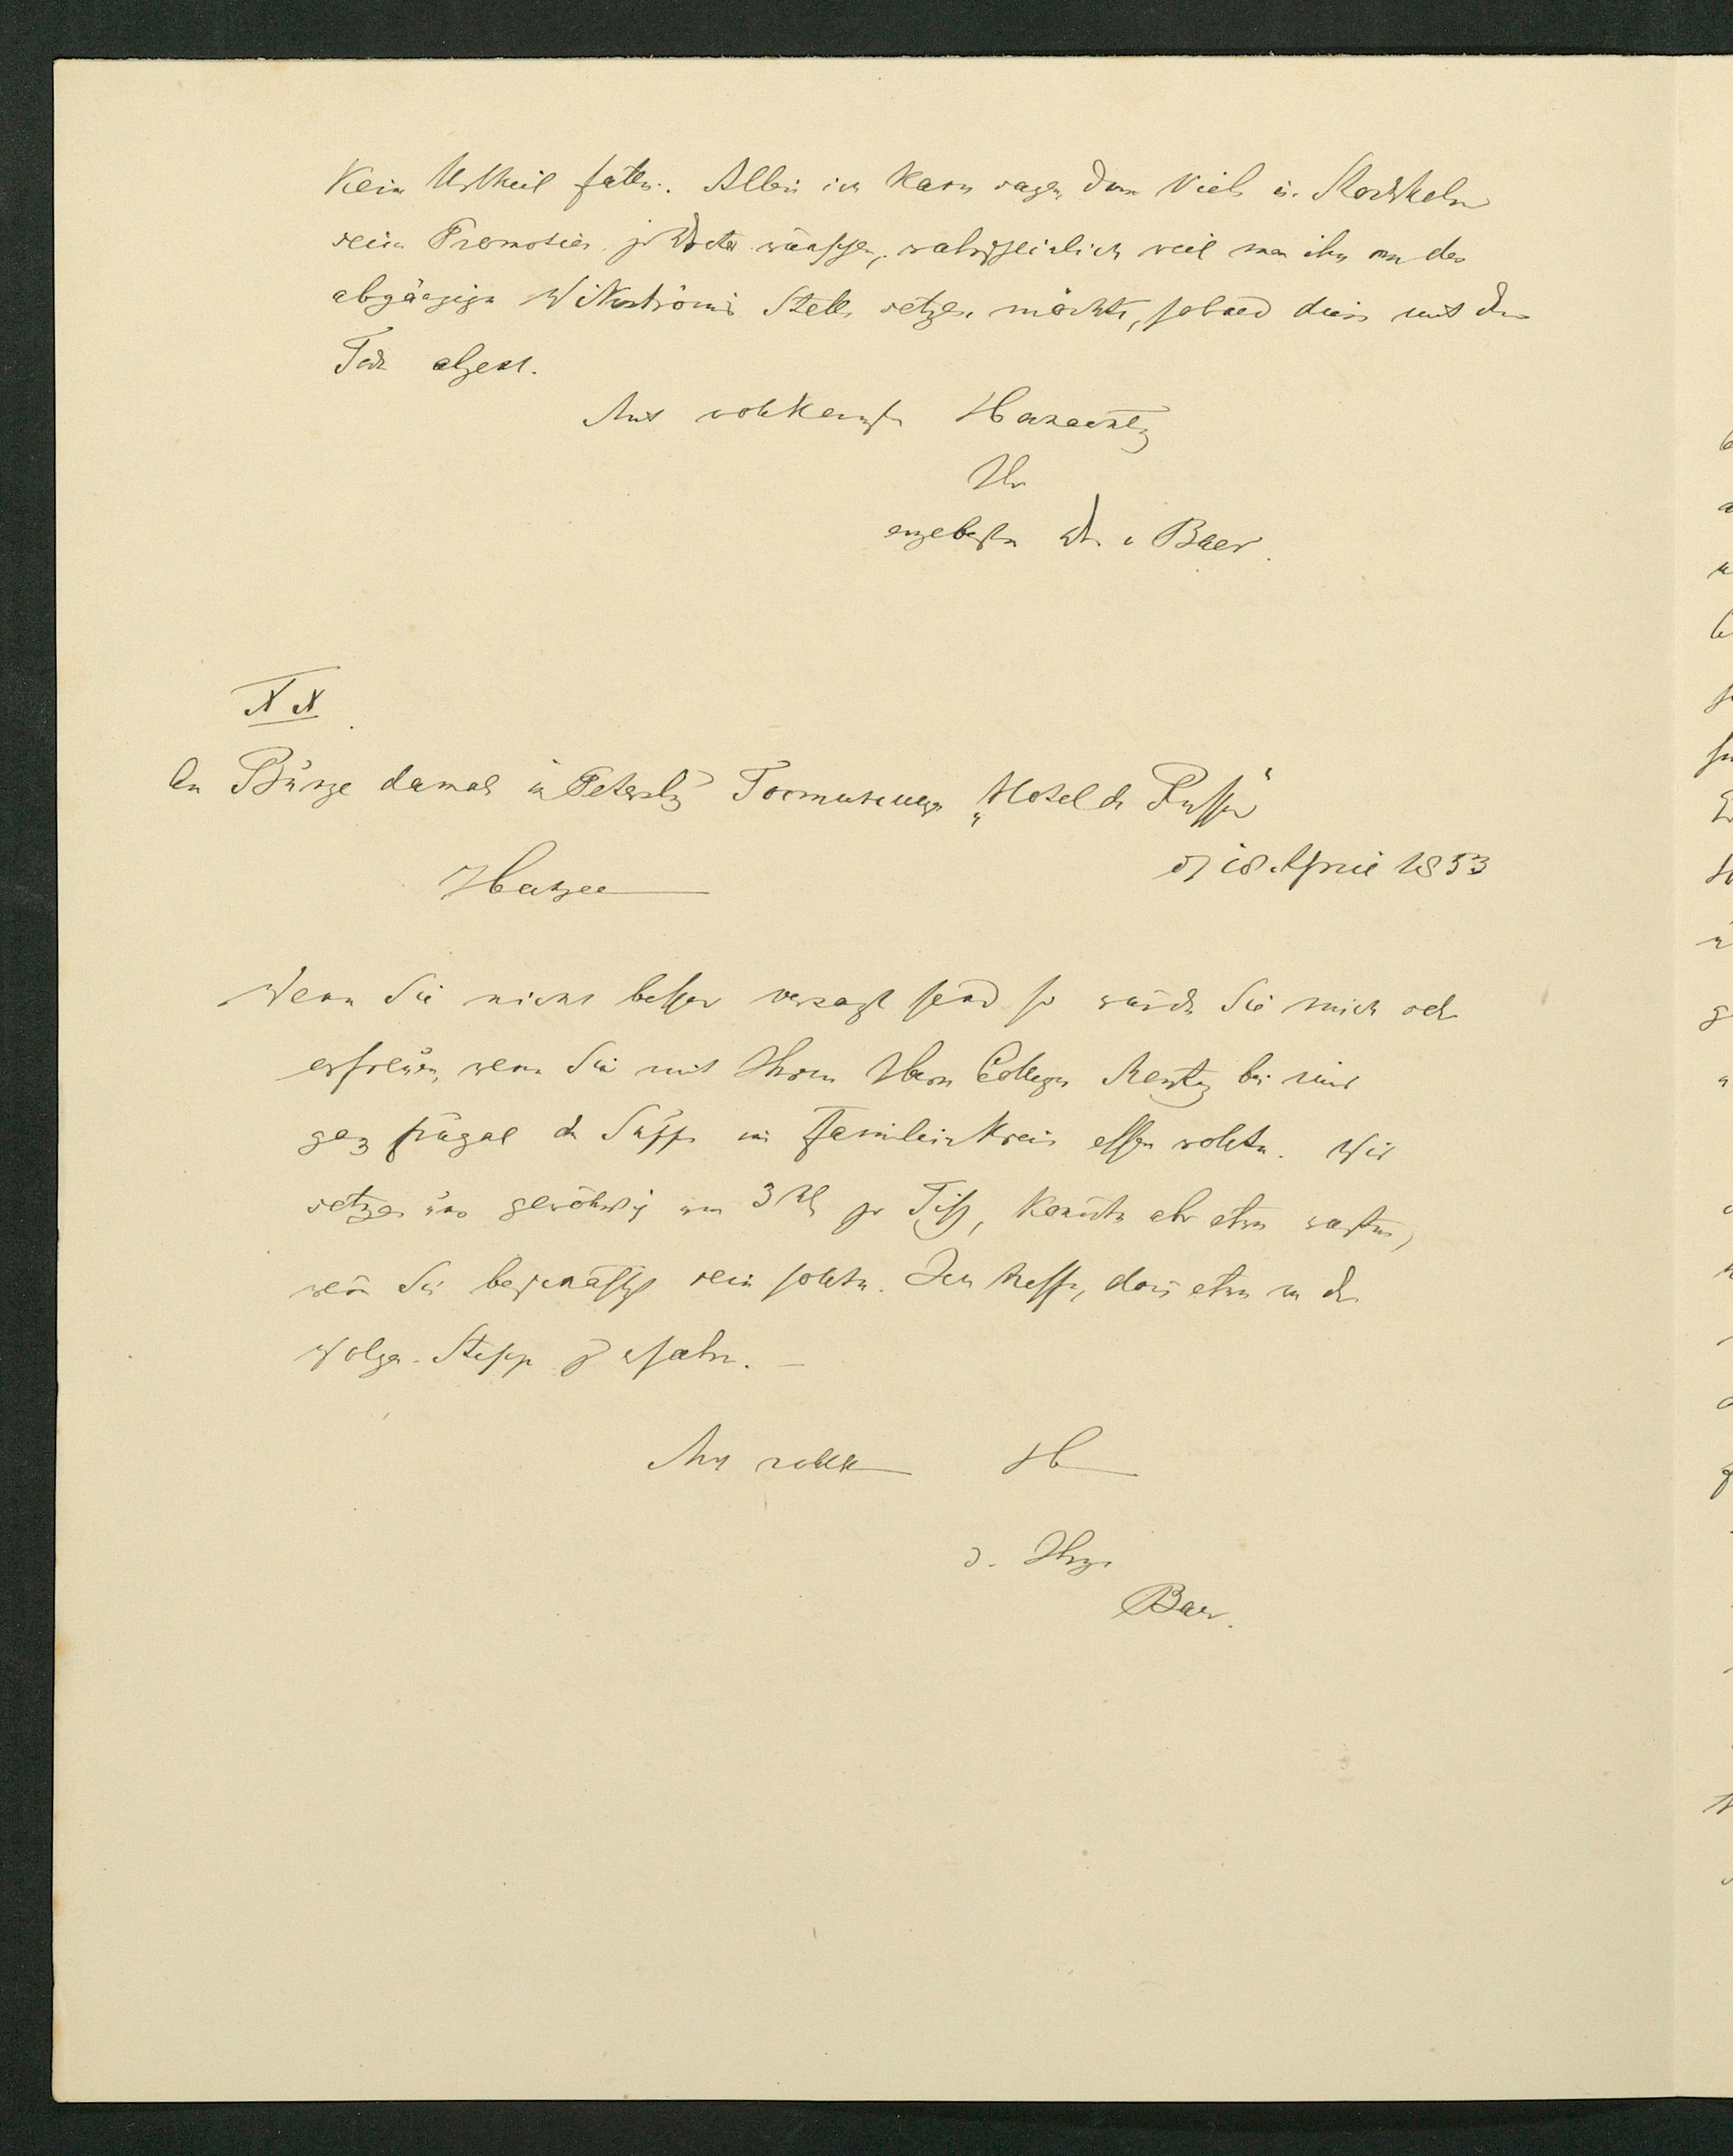 Kein Urtheil fällen. Allein ich kann sagen dass Viele in Stockholm
seine Promotion zu wünschen, wahrscheinlich weil man ihn an des
abgängigen Wikströms Stelle setzen möchte, sobald dieser mit dem
Tode abgeht.
Mit vollkommenster Hochachtung
Ihr
ergebenster v Baer.
XX
An Bunge damals in Petersburg Гостиница „Hotel de Russie“
d 18 April 1853
Wenn Sie nicht besser versagt sind so würden Sie mich sehr
erfreuen, wenn Sie mit Ihrem Herrn Collegen bei mir
ganz frugal die Suppe im Familienkreise essen wollten. Wir
setzen uns gewöhnlich um 3 Uhr zu Tisch, könnten aber etwas warten,
wenn Sie beschäftigt sein sollten. Ich hoffe, dann etwas von der
Wolga-Steppe zu erfahren. –
Mit vollk H
d. Ihrige
Baer.